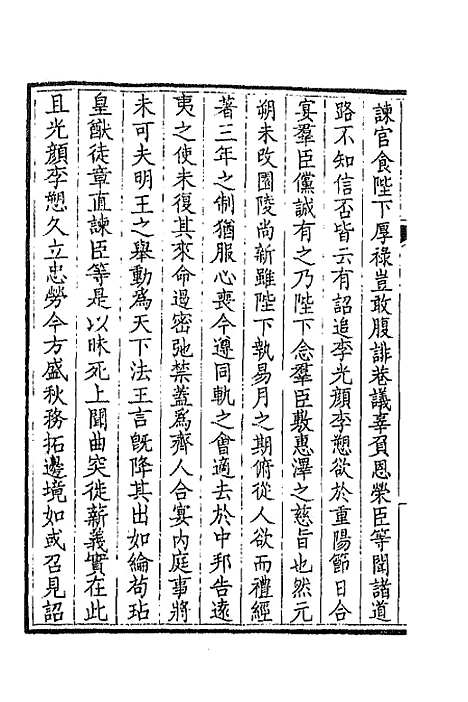 諫官食陛下厚祿豈敢腹誹巷議辜負恩榮臣等聞諸道
路不知信否皆云有詔追李光顔李愬欲於重陽節日合
宴羣臣儻誠有之乃陛下念羣臣敷惠澤之慈旨也然元
朔未改園陵尚新雖陛下執易月之期俯從人欲而禮經
著三年之制猶服心喪今遵同軌之會適去於中邦告遠
夷之使未復其來命遏密弛禁蓋為齊人合宴内庭事將
未可夫明王之舉動為天下法王言旣降其出如綸茍玷
皇猷徒章直諫臣等是以昧死上聞曲突徙薪義實在此
且光顔李愬久立忠勞今方盛秋務拓邊境如或召見詔